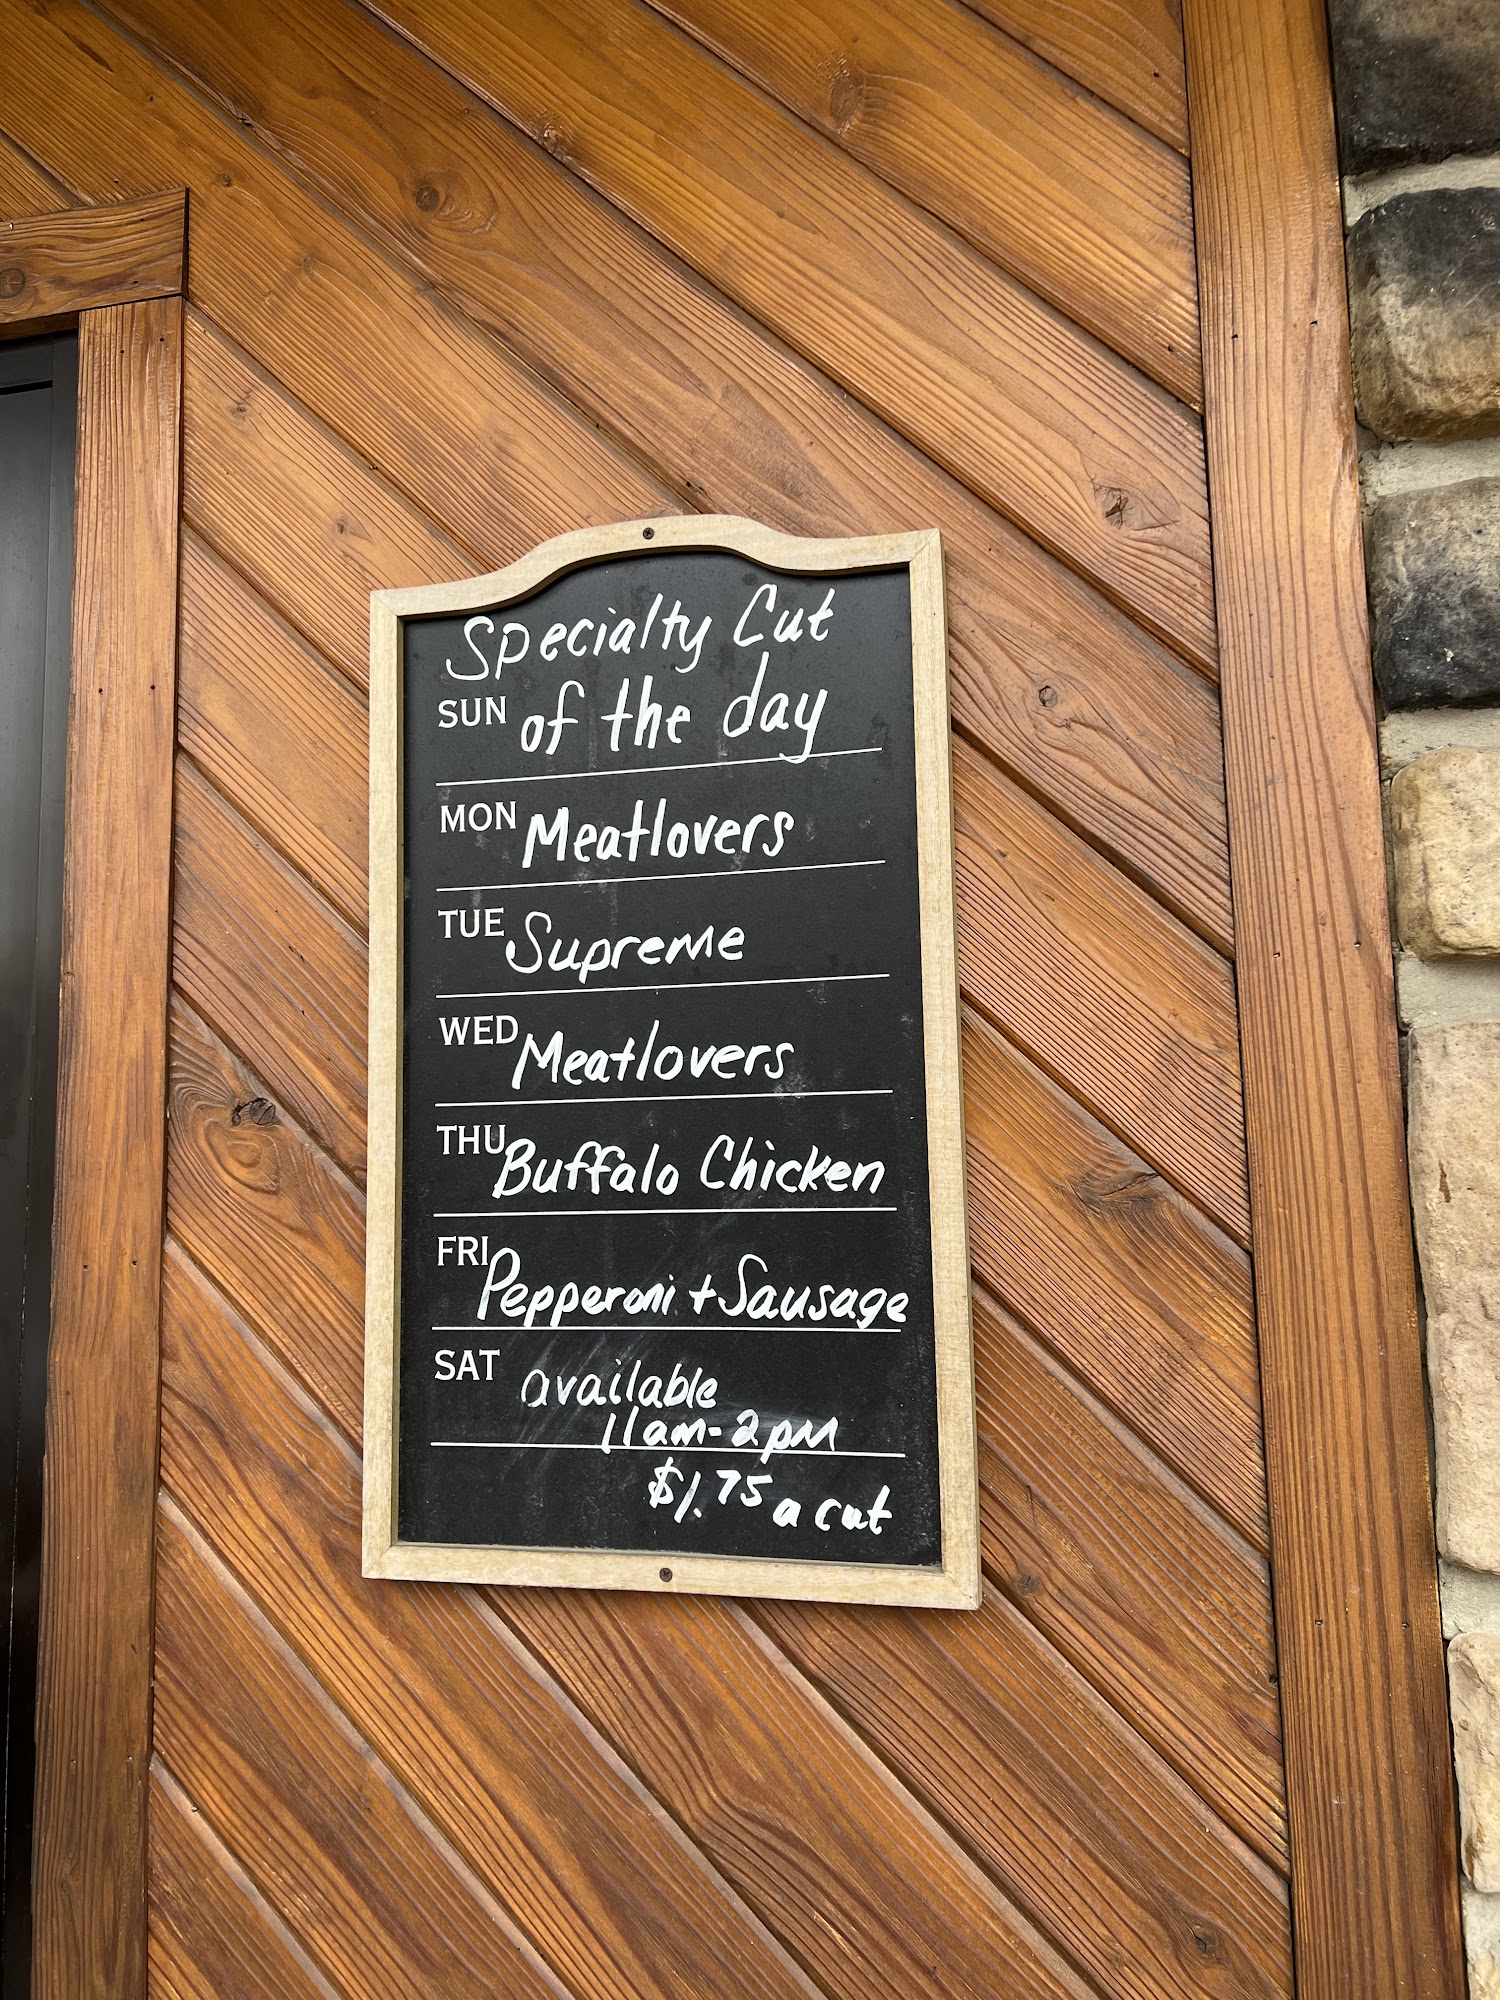 Specialty Cut
SUN of the day
MON Meatlovers
TUE Supreme
WED Meatlovers
THU Buffalo Chicken
FRI Pepperoni + Sausage
SAT available
11am-2pm
$1.75 a cut